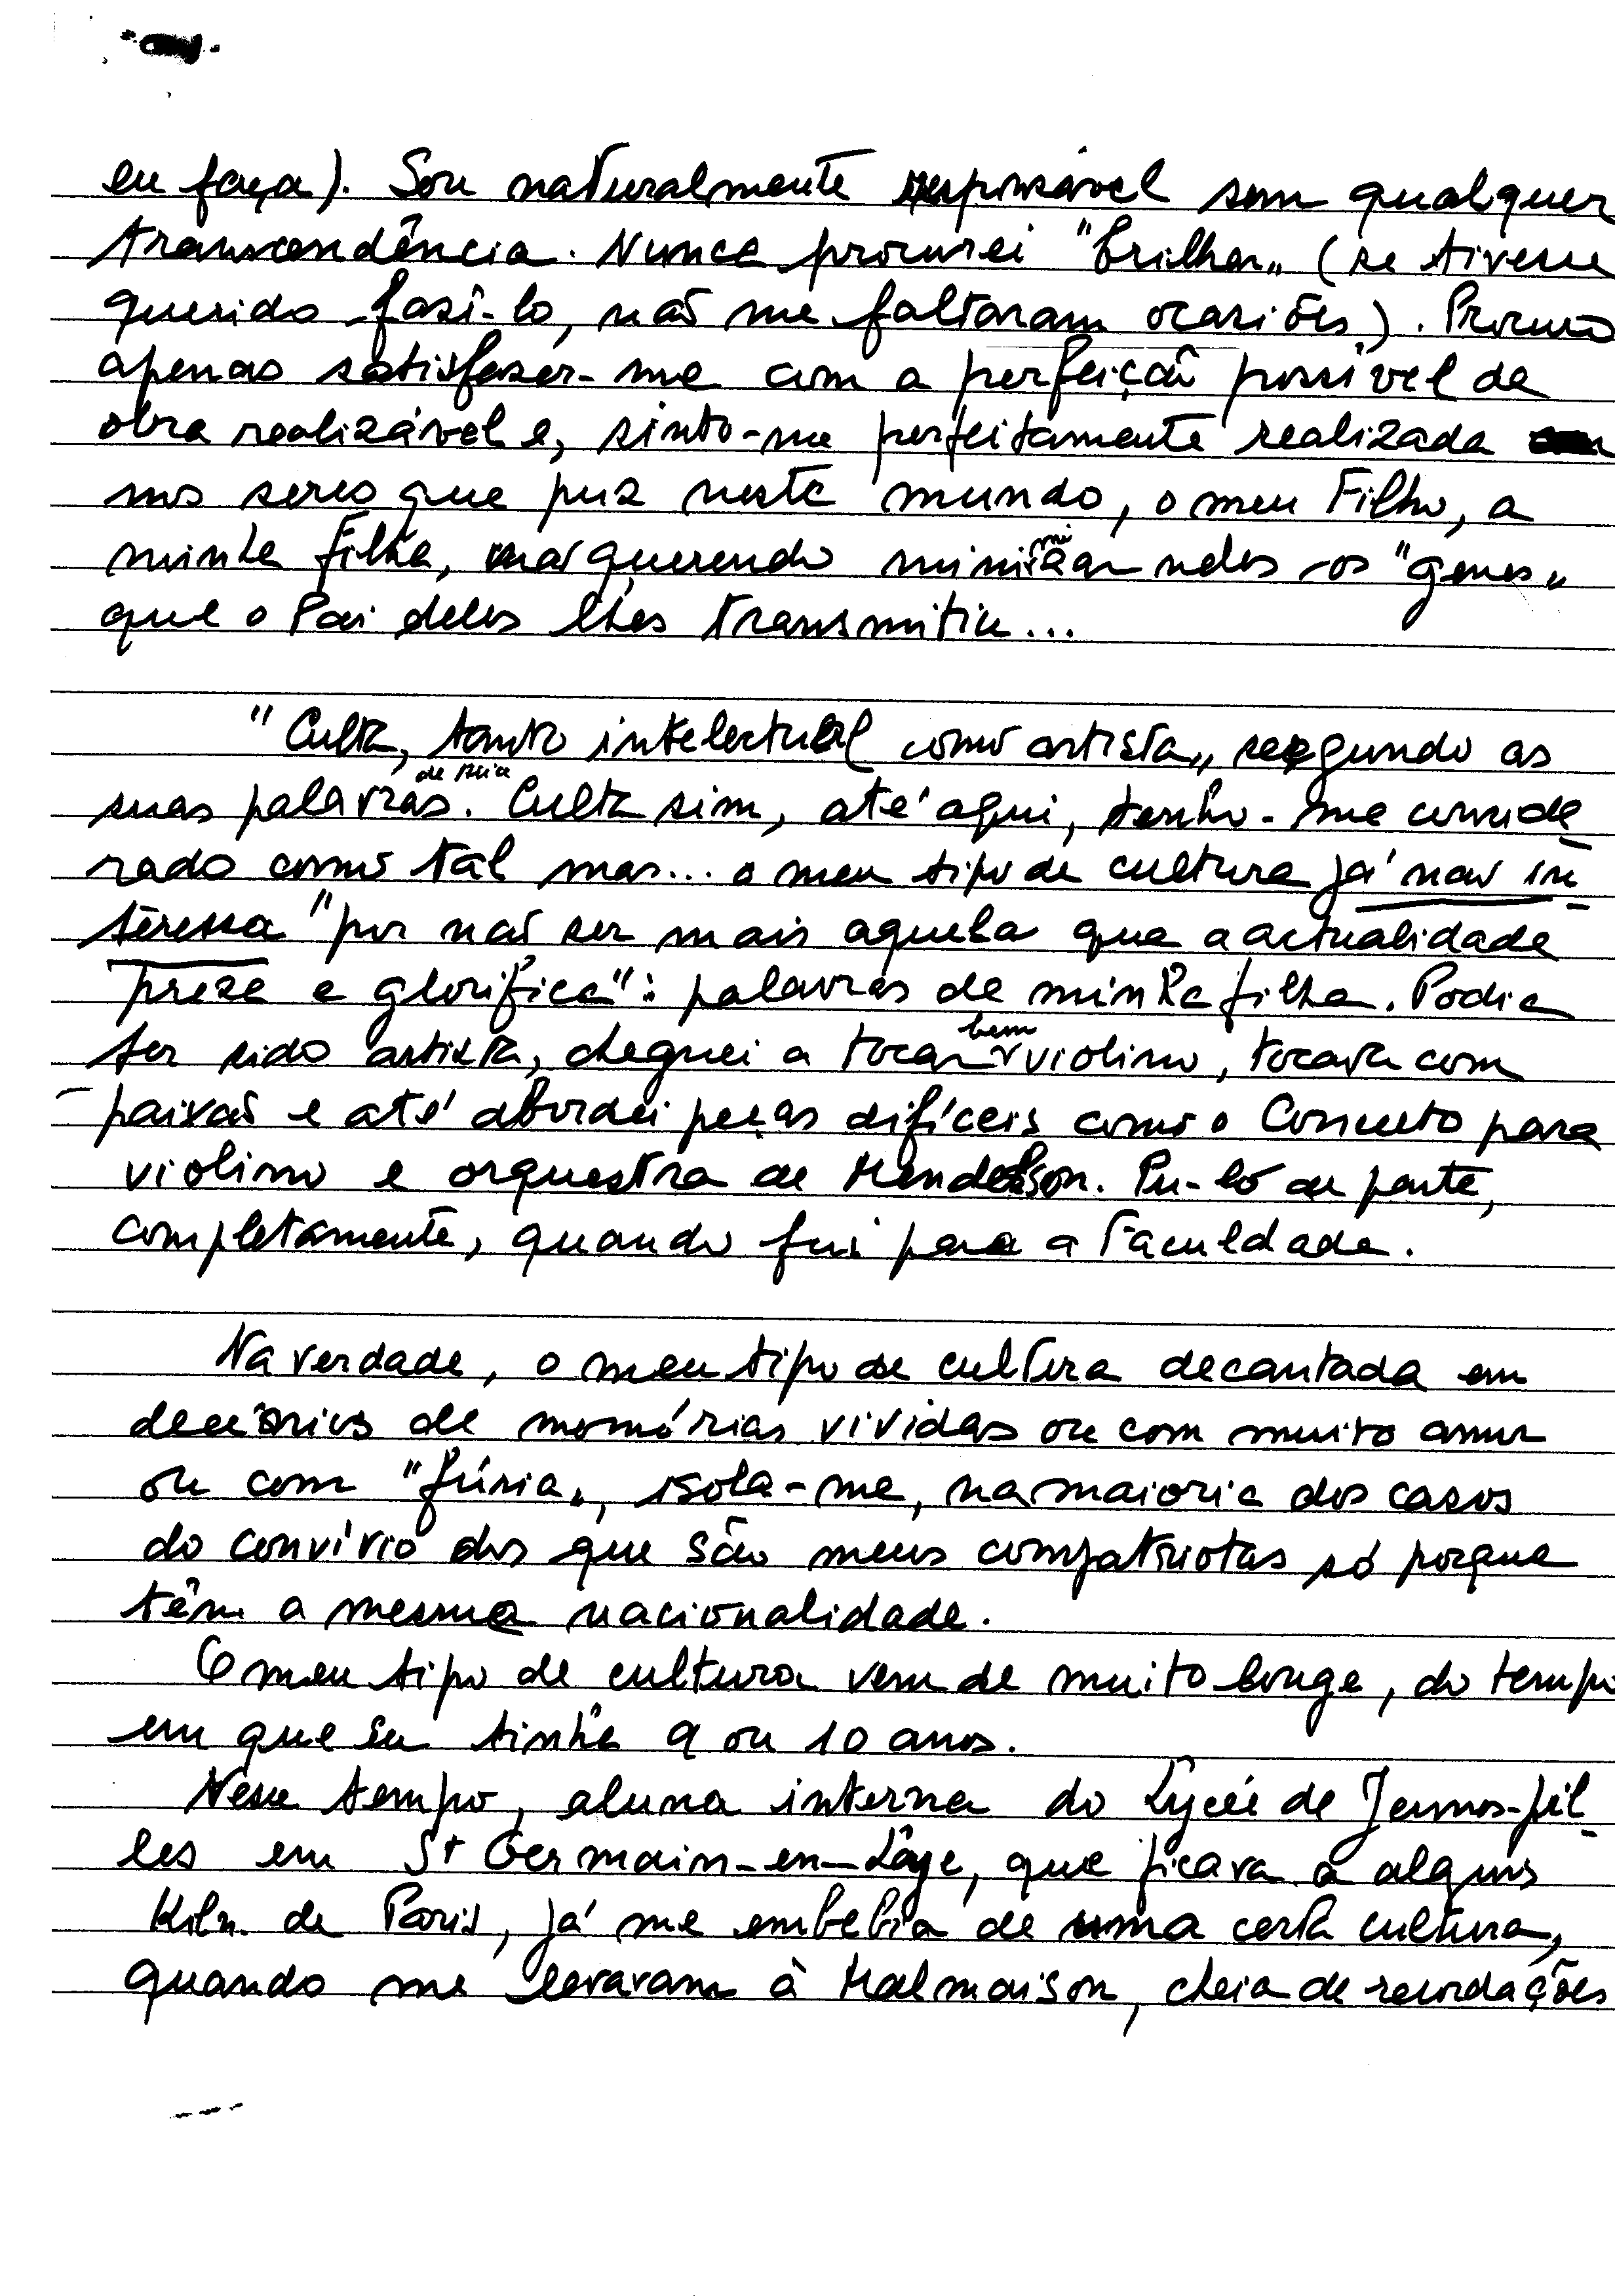 eu faça). Sou naturalmente responsável sem qualquer
transcendência. Nunca procurei "brilhar" (se tivesse
querido fazê-lo, não me faltaram ocasiões). Procuro
apenas satisfazer-me com a perfeição possível da
obra realizável e, sinto-me perfeitamente realizada
nos seres que puz neste mundo, o meu Filho, a
minha filha, não querendo minimizar neles os "genes"
que o Pai deles lhes transmitiu...
"Culta, tanto intelectual como artista" segundo as
suas palavras de Mia. Culta sim, até aqui, tenho-me conside
rado como tal mas... o meu tipo de cultura já não in-
teressa "por não ser mais aquela que a actualidade
preza e glorifica": palavras de minha filha. Podia
ter sido artista, cheguei a tocar bem violino, tocava com
paixão e até abordei peças difíceis como o Concerto para
violino e orquestra de Mendelson. Pu-lo de parte,
completamente, quando fui para a Faculdade.
Na verdade, o meu tipo de cultura decantada em
decénios de memórias vividas ou com muito amor
ou com "fúria", isola-me, na maioria dos casos
do convívio dos que são meus compatriotas só porque
têm a mesma nacionalidade.
O meu tipo de cultura vem de muito longe, do tempo
em que eu tinha 9 ou 10 anos.
Nesse tempo, aluna interna do Lycée de Jeunes-fil-
les em St Germain-en-Laye, que ficava a alguns
Kilm. de Paris, já me embebia de uma certa cultura,
quando me levavam à Malmaison, cheia de recordações